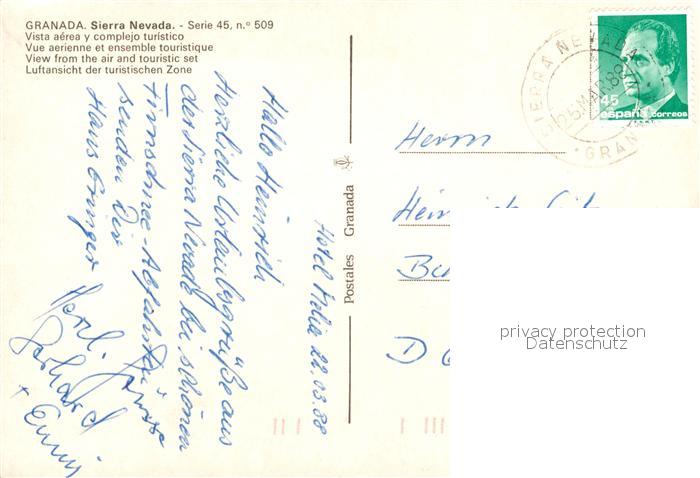 GRANADA. Sierra Nevada. - Serie 45, n.º 509
Vista aérea y complejo turístico
Vue aerienne et ensemble touristique
View from the air and touristic set
Luftansicht der turistischen Zone
Hotel Melia 22.03.88
Hallo Heinrich
Herzliche Urlaubsgrüße aus
der Sierra Nevada bei schönen
Firnschnee-Abfahrten
senden Dir
Hans
Herzl. Grüsse
Gerhard
Postales Granada
SIERRA NEVADA
25 MAR. 88
GRAN
45
españa correos
Herrn
Heinrich
D
privacy protection
Datenschutz